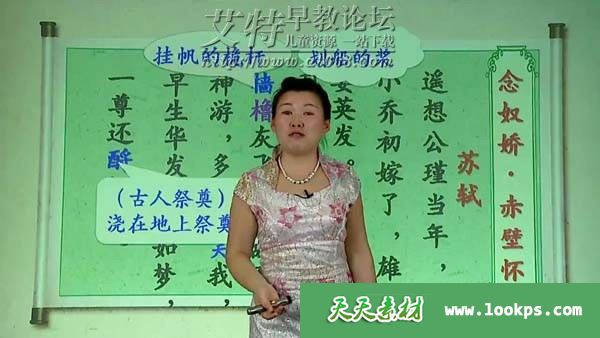 艾特早教论坛
儿童资源 一站下载
挂帆的桅杆 划船的桨
念奴娇·赤壁怀
苏轼
遥想公瑾当年，
小乔初嫁了，雄
姿英发。
橹灰
神游，多 我，
早生华发 如梦，
一尊还酹
（古人祭奠）
浇在地上祭奠
天天素材 www.lookps.com